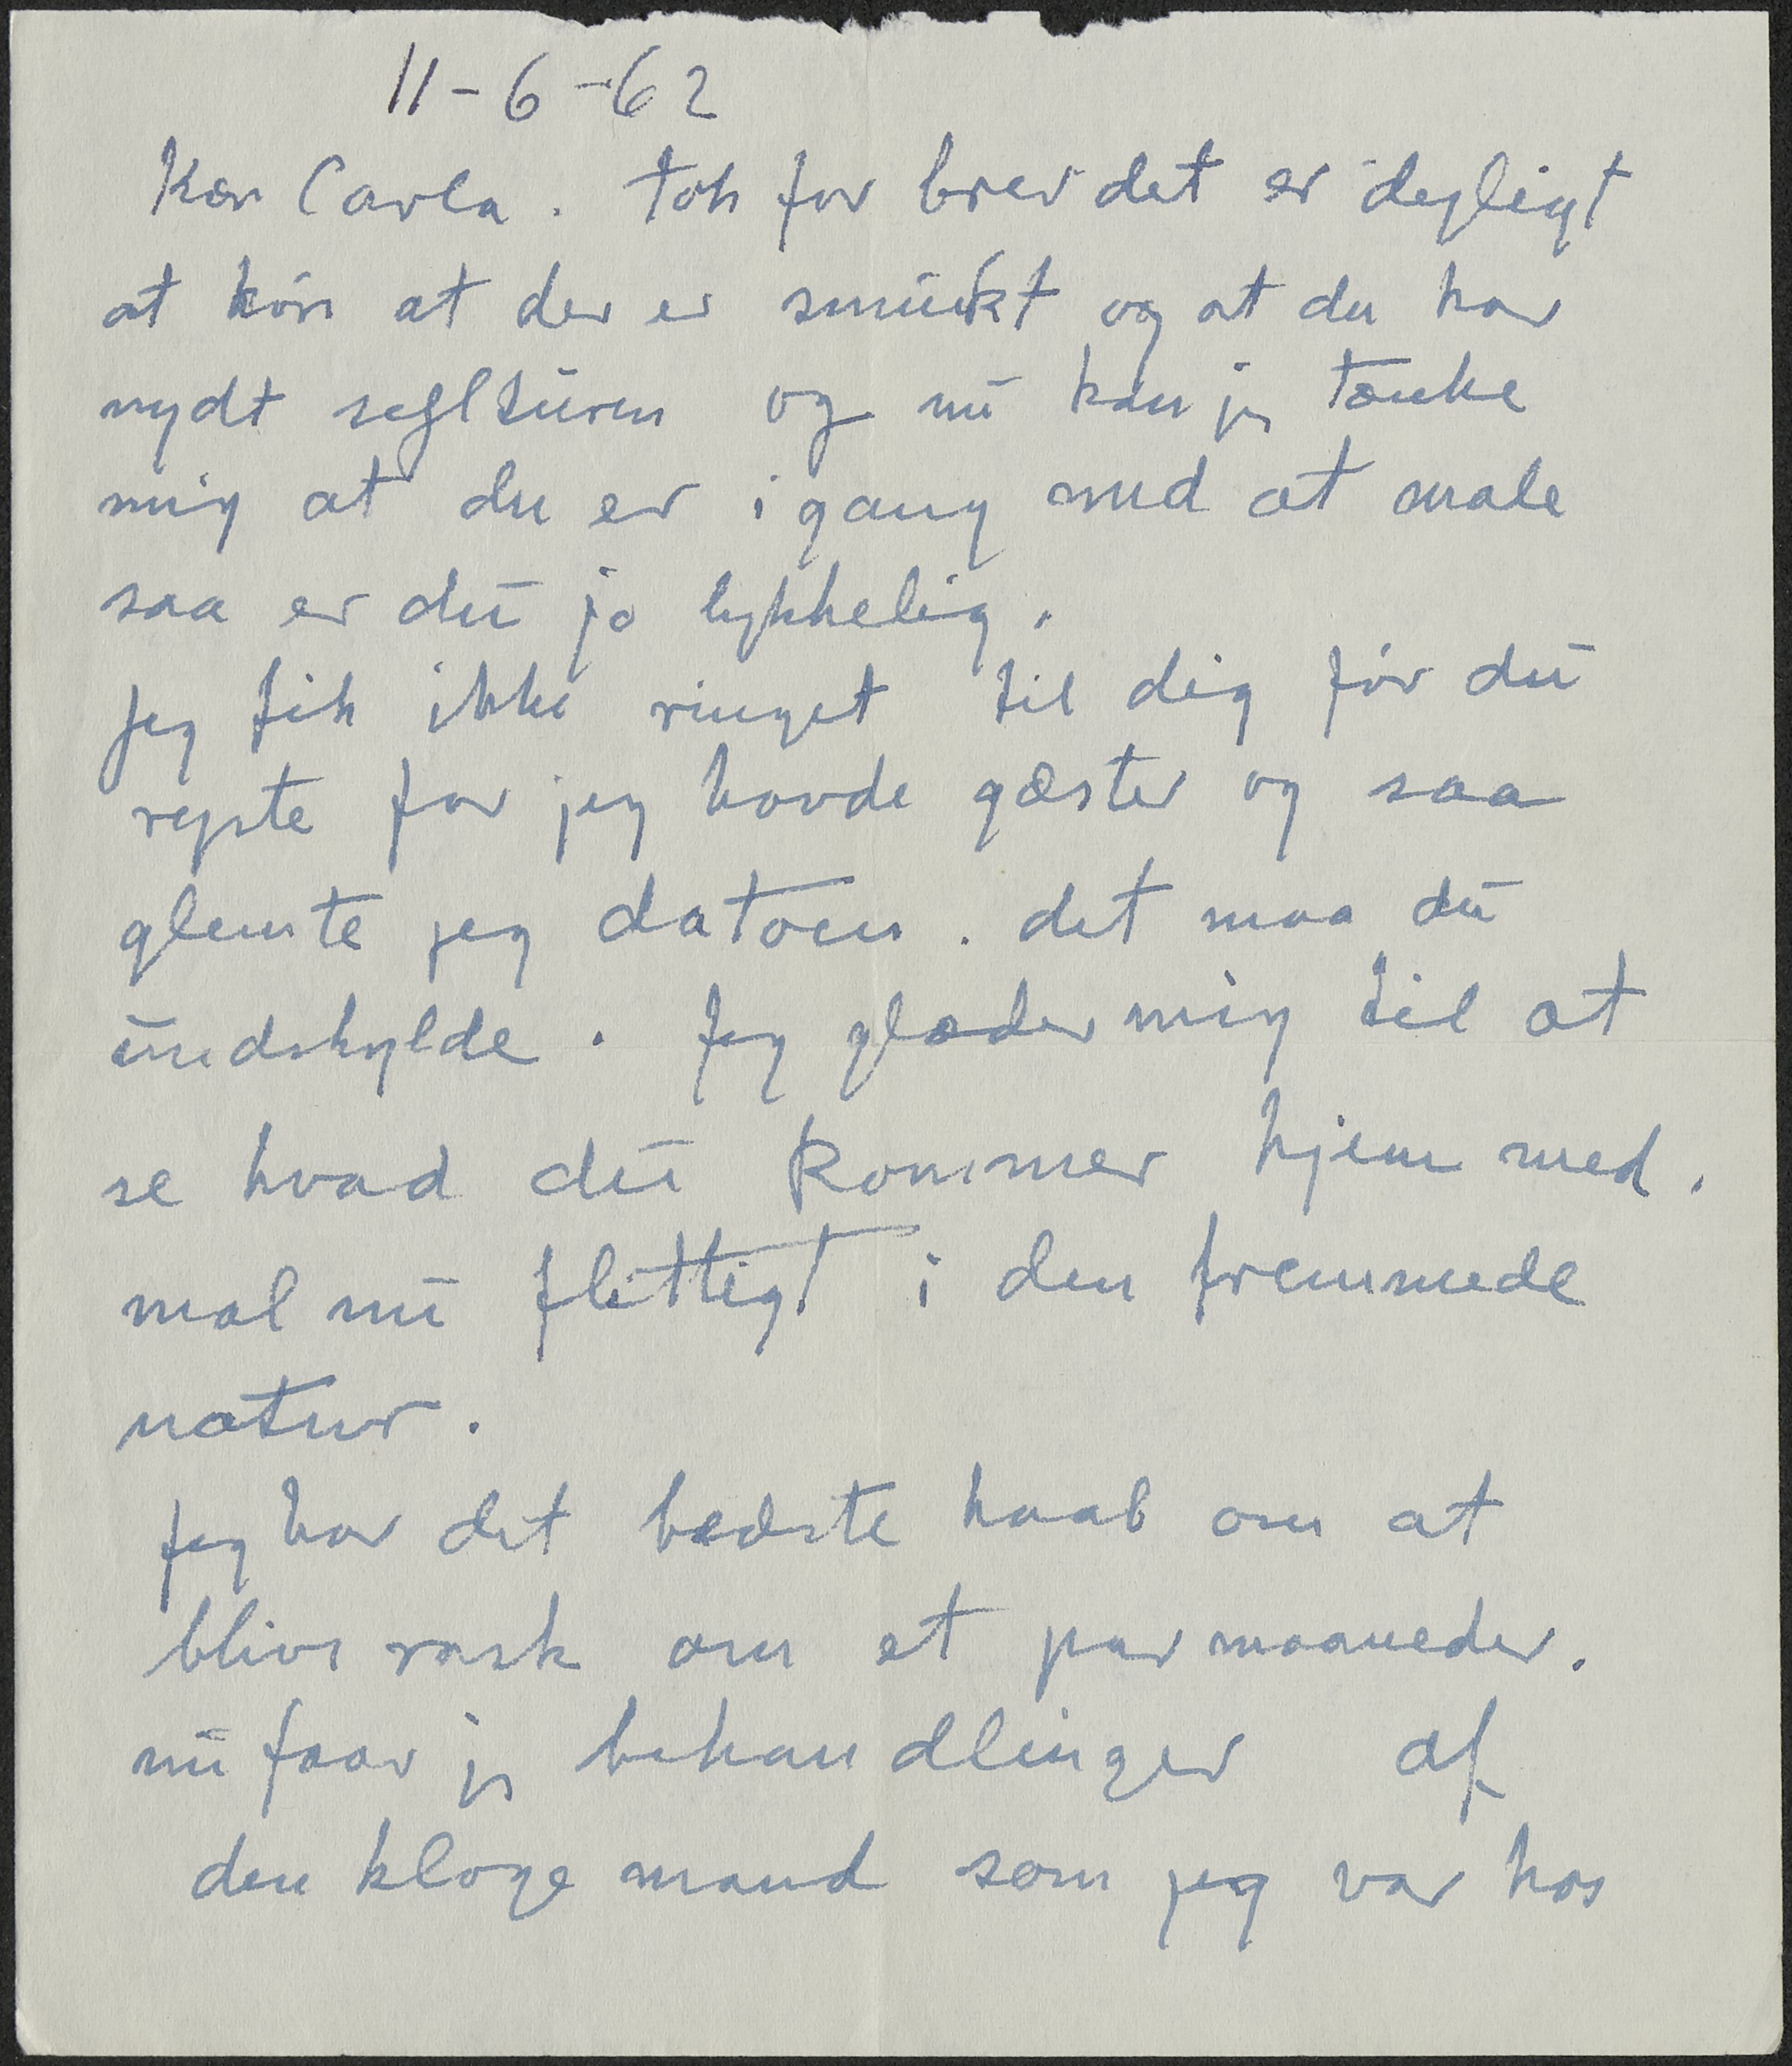 11-6-62
Kær Carla. tak for brev det er dejligt
at höre at der er smukt og at du har
nydt sejlturen og nu kan jeg tænke
mig at du er igang med at male
saa er du jo lykkelig.
Jeg fik ikke ringet til digför du
rejste for jeg havde gæster og saa
glemte jeg datoen. det maa du
undskylde. Jeg glæder mig til at
se hvad du kommer hjem med.
mal nu flittigt i den fremmede
natur.
Jeg har det bedste haab om at
blive rask om et par maaneder.
nu faar jeg behandlinger af
den kloge mand som jeg var hos